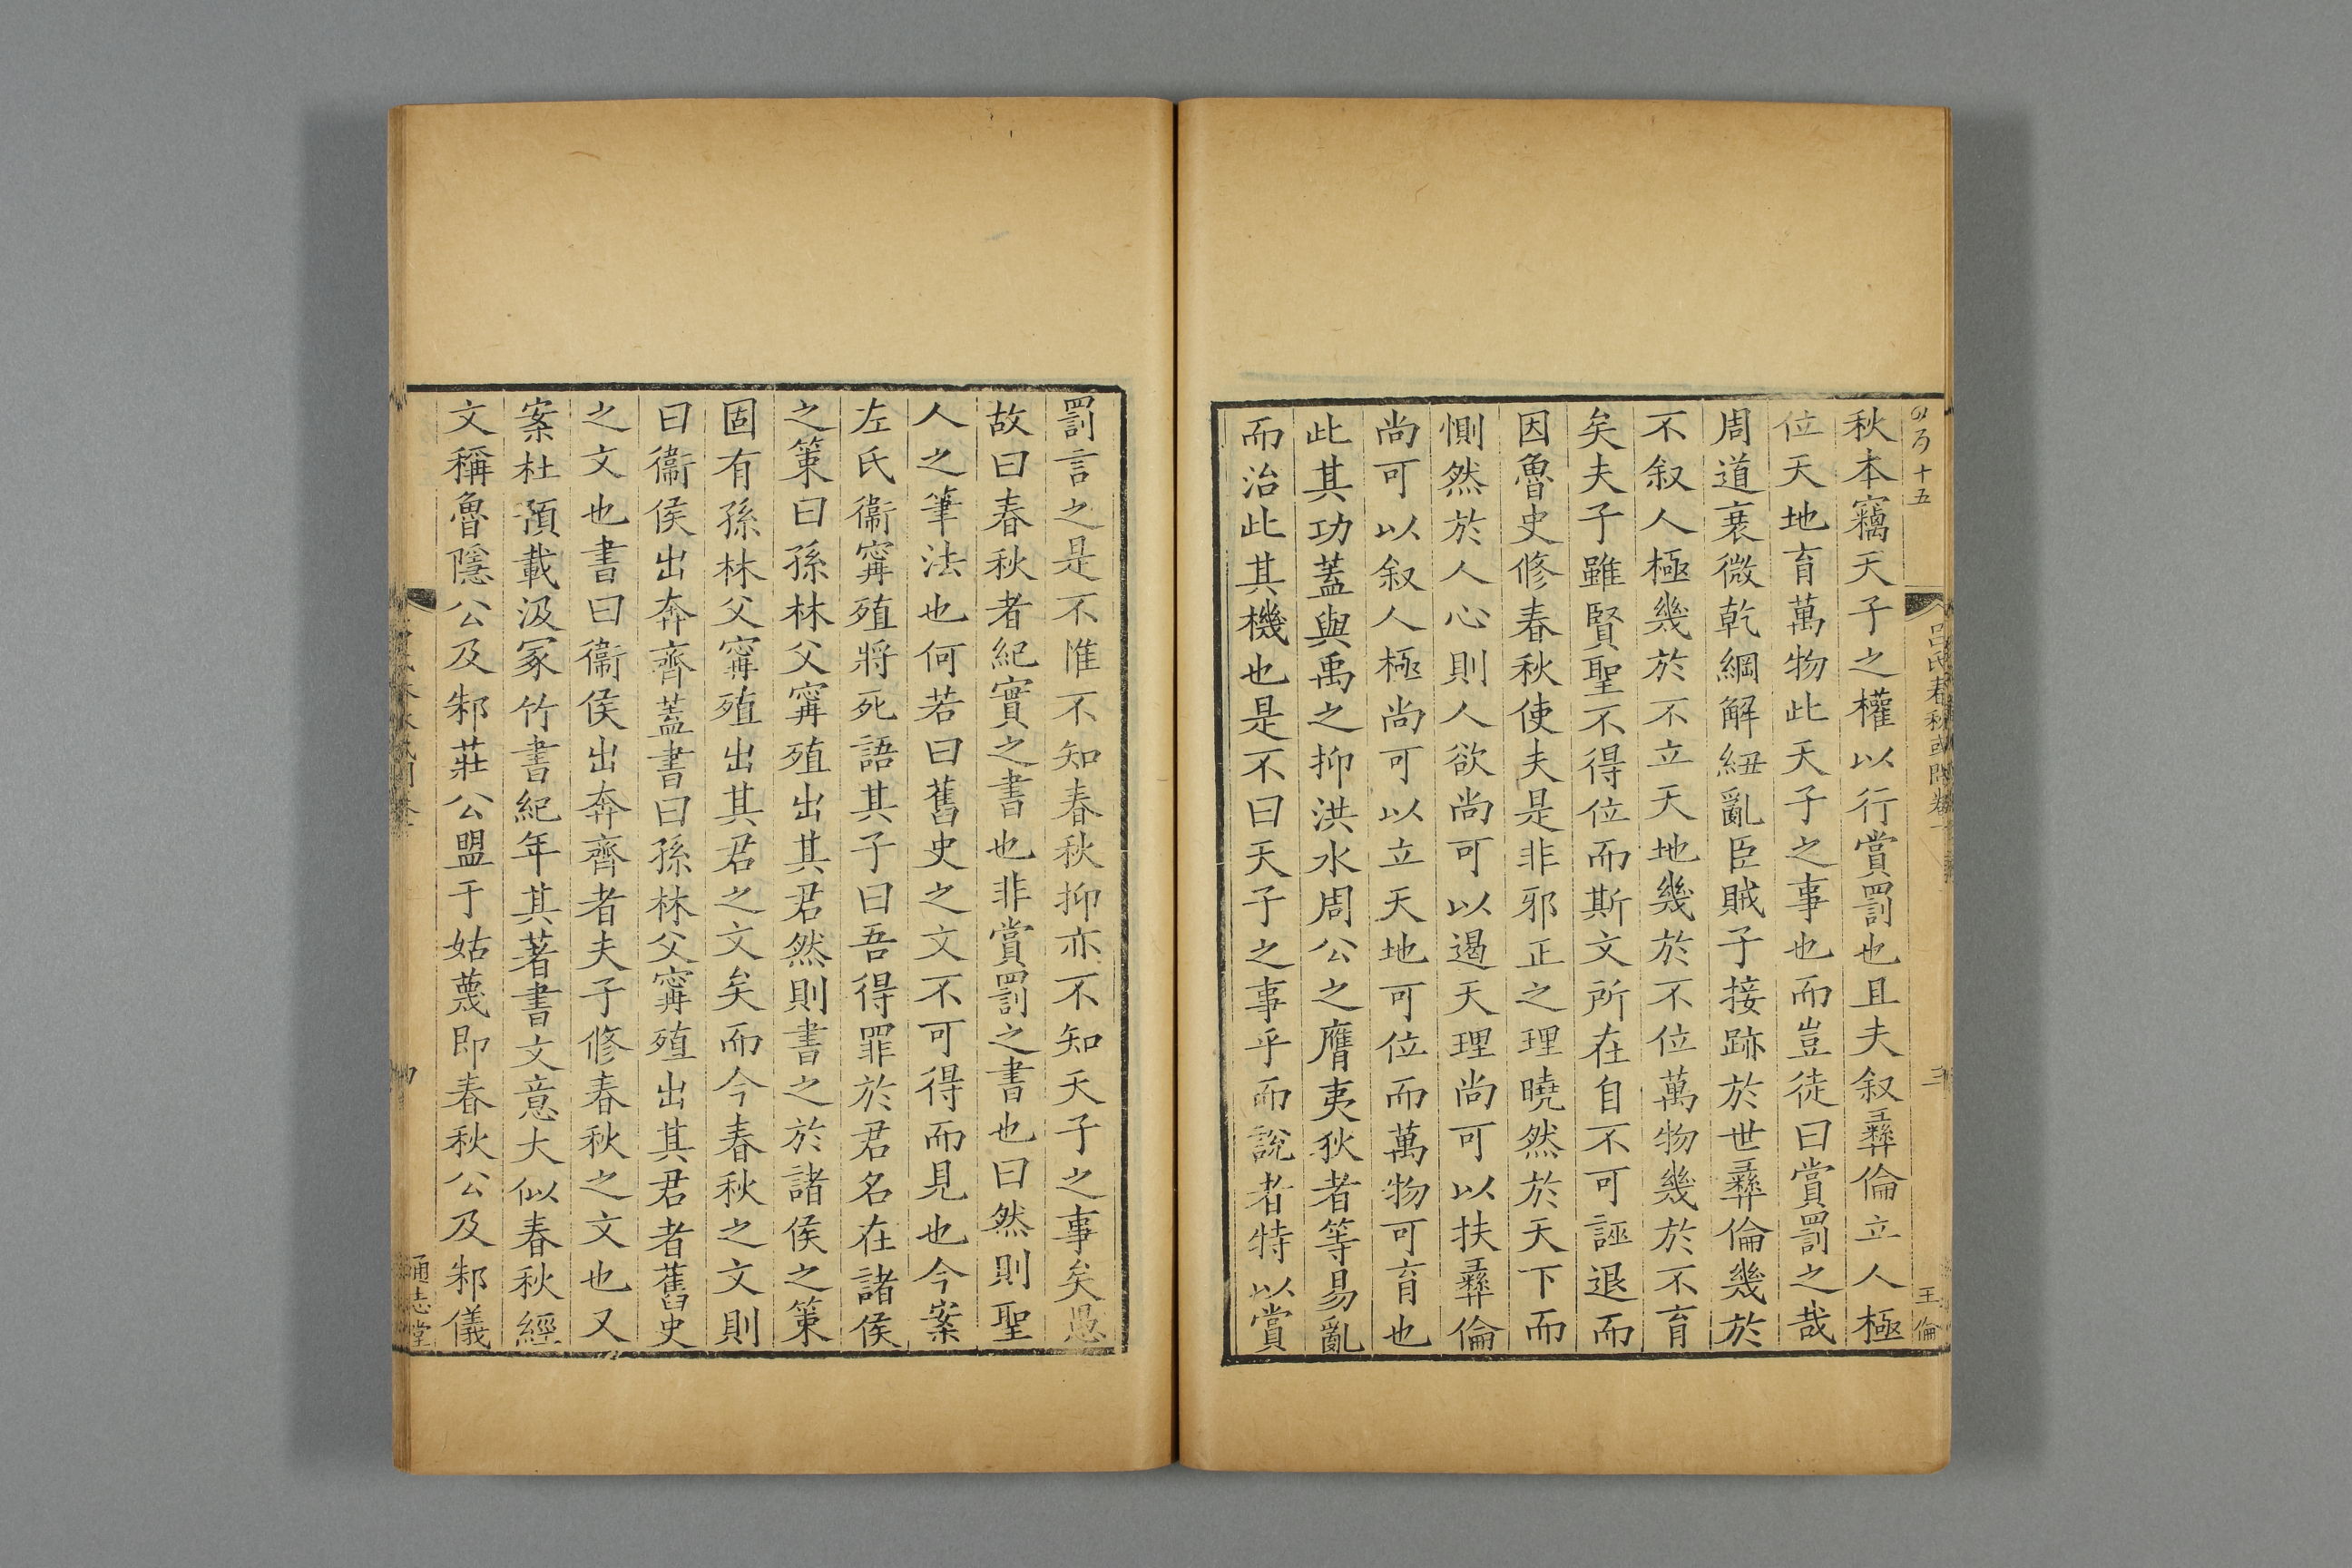 秋本竊天子之權以行賞罰也且夫叙彞倫立人極
位天地育萬物此天子之事也而豈徒曰賞罰之哉
周道衰微乾綱解紐亂臣賊子接跡於世彞倫幾於
不叙人極幾於不立天地幾於不位萬物幾於不育
矣夫子雖賢聖不得位而斯文所在自不可誣退而
因魯史修春秋使夫是非邪正之理曉然於天下而
惻然於人心則人欲尚可以遏天理尚可以扶彞倫
尚可以叙人極尚可以立天地可位而萬物可育也
此其功蓋與禹之抑洪水周公之膺夷狄者等易亂
而治此其機也是不曰天子之事乎而說者特以賞
呂氏春秋或問卷一
三
王倫
罰言之是不惟不知春秋抑亦不知天子之事矣愚
故曰春秋者紀實之書也非賞罰之書也曰然則聖
人之筆法也何若曰舊史之文不可得而見也今案
左氏衞寗殖將死語其子曰吾得罪於君名在諸侯
之策曰孫林父寗殖出其君然則書之於諸侯之策
固有孫林父寗殖出其君之文矣而今春秋之文則
曰衞侯出奔齊蓋書曰孫林父寗殖出其君者舊史
之文也書曰衞侯出奔齊者夫子修春秋之文也又
案杜預載汲冢竹書紀年其著書文意大似春秋經
文稱魯隱公及邾莊公盟于姑蔑即春秋公及邾儀
通志堂